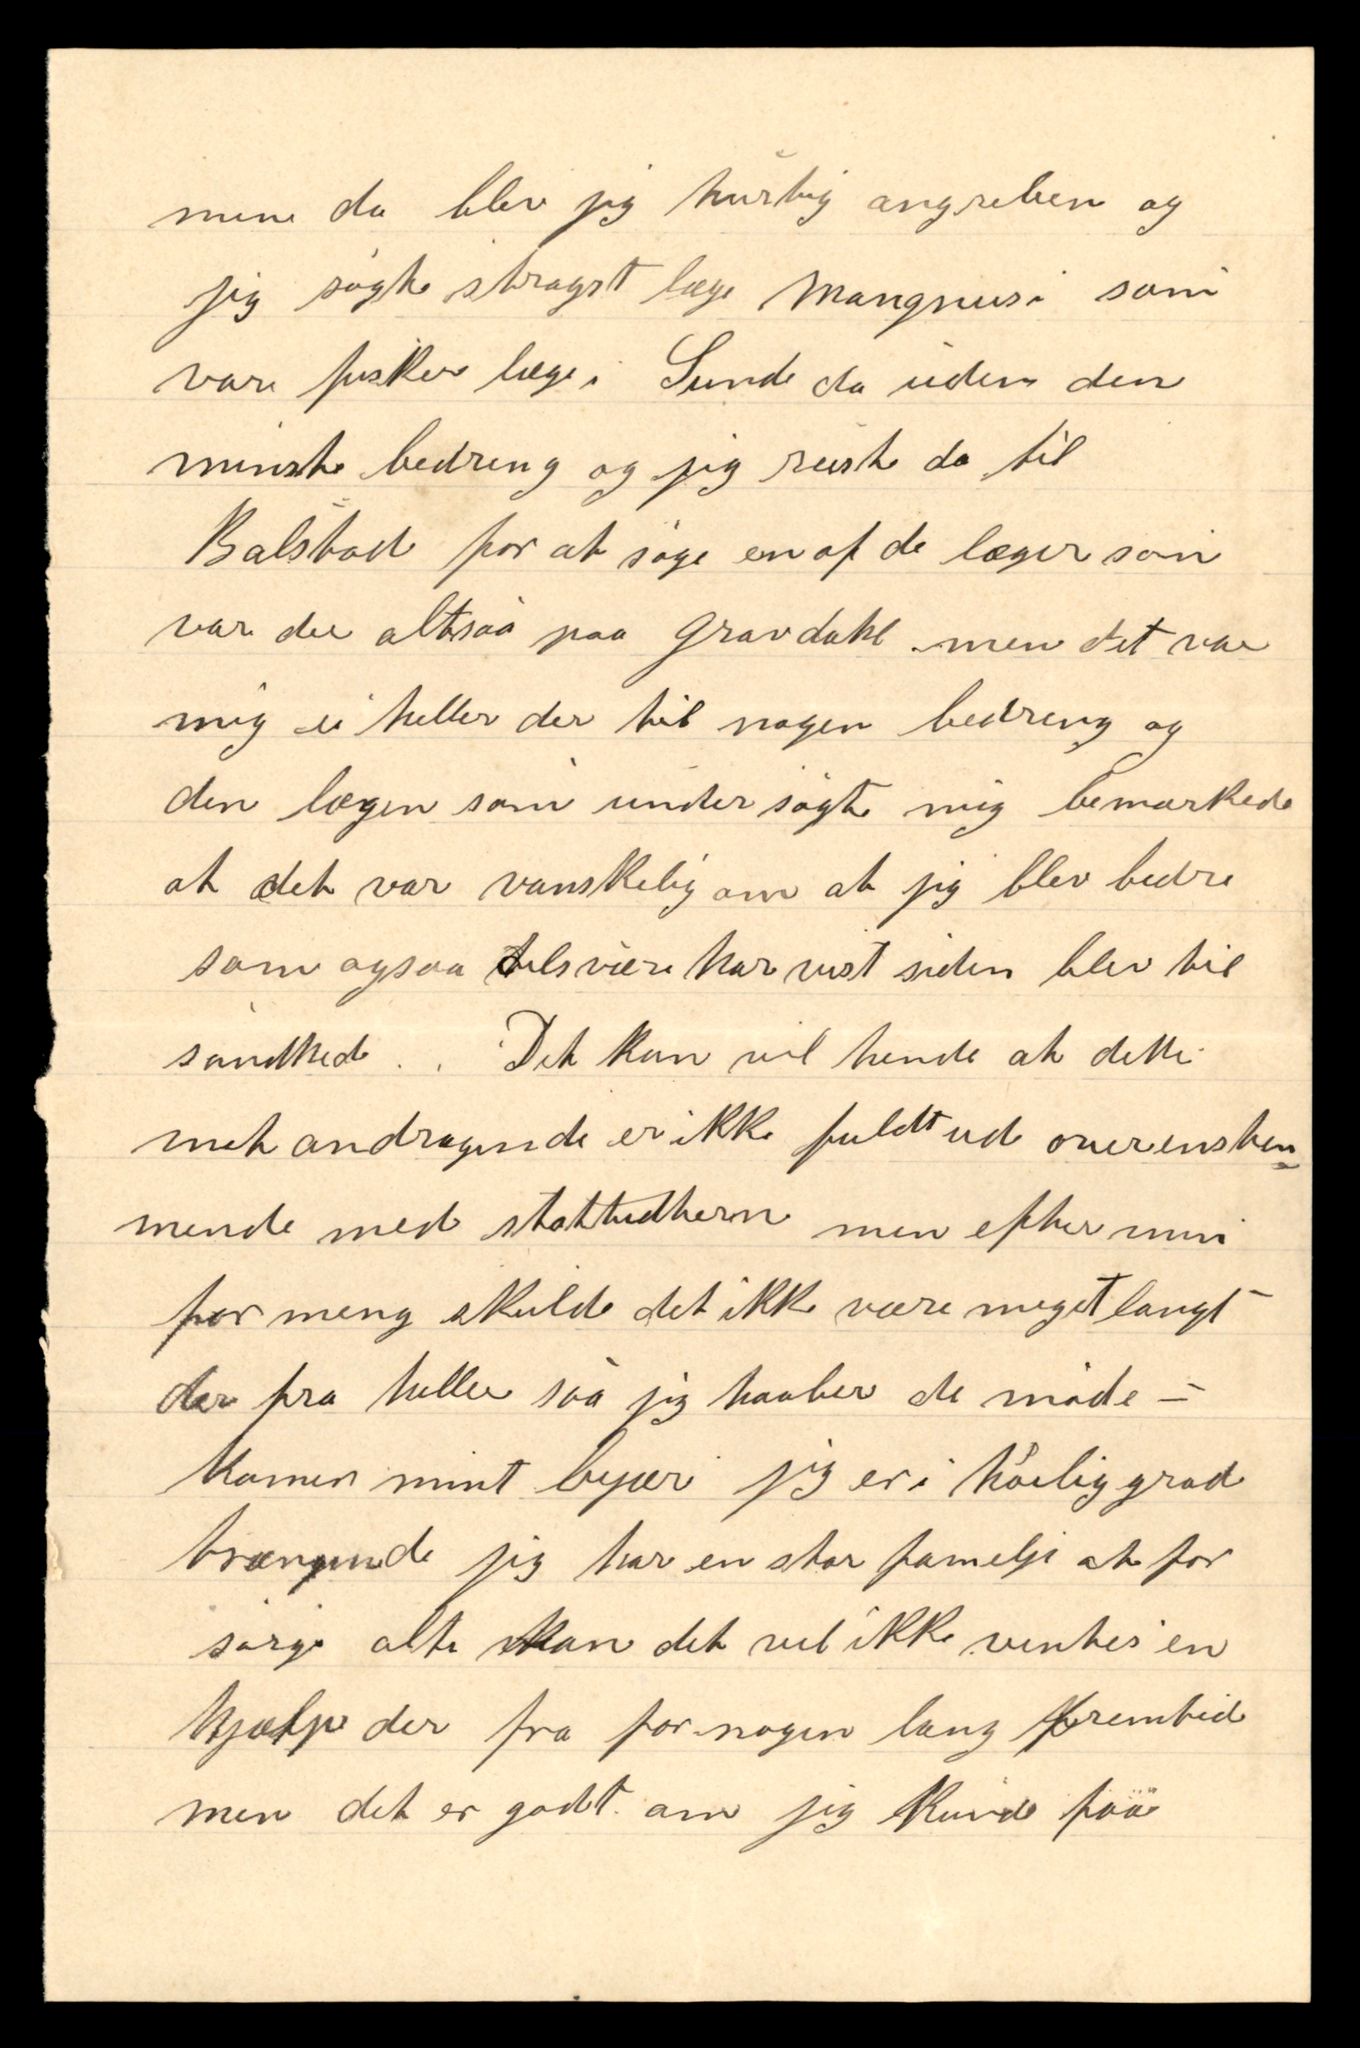 men da blev jig hurtig angreben og
jig søgte stragst læge Mangnus som
var fisker læge i Sund da uden den
minste bedreng og jig reiste da til
Balstad for at søge en af de læger som
var der altsaa paa Gravdahl men det var
mig ei heller der til nogen bedreng og
den lægen som under søgte mig bemærkede
at det var vanskelig om at jig blev bedre
som ogsaa dels være har vist siden blev til
sandhed . . Det kan vil hende at dette
mit andragende er ikke fuldt ud overenstem
mende med stattudtern men efter min
for meng skulde det ikke være meget langt
der fra heller saa jig haaber de møde =
komer mint begjær jig er i høilig grad
trængende jig har en stor familje at for
sørge alte kan det vel ikke ventes en
hjælp der fra for nogen lang fremtid
men det er godt om jig kunde faa